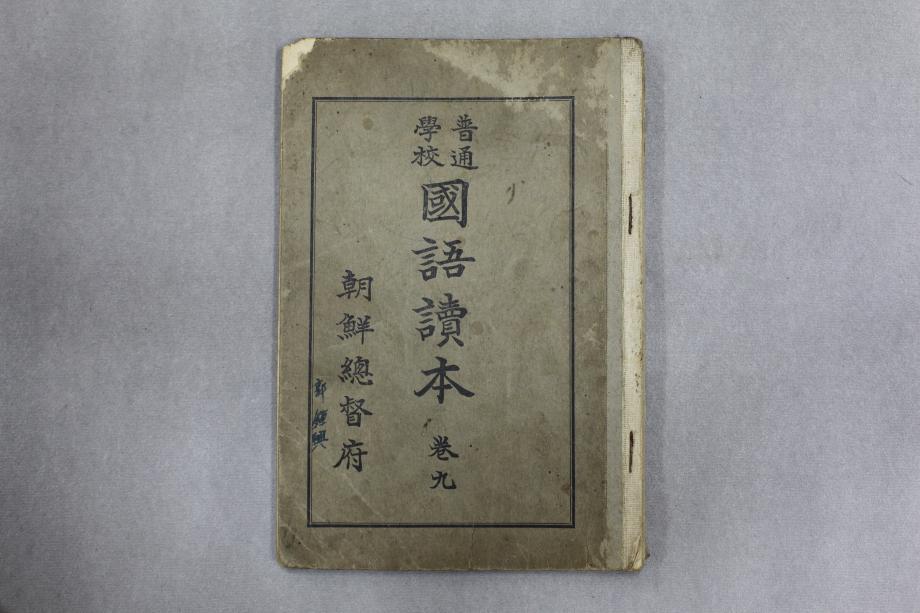 普通
學校
國語讀本 卷九
朝鮮總督府